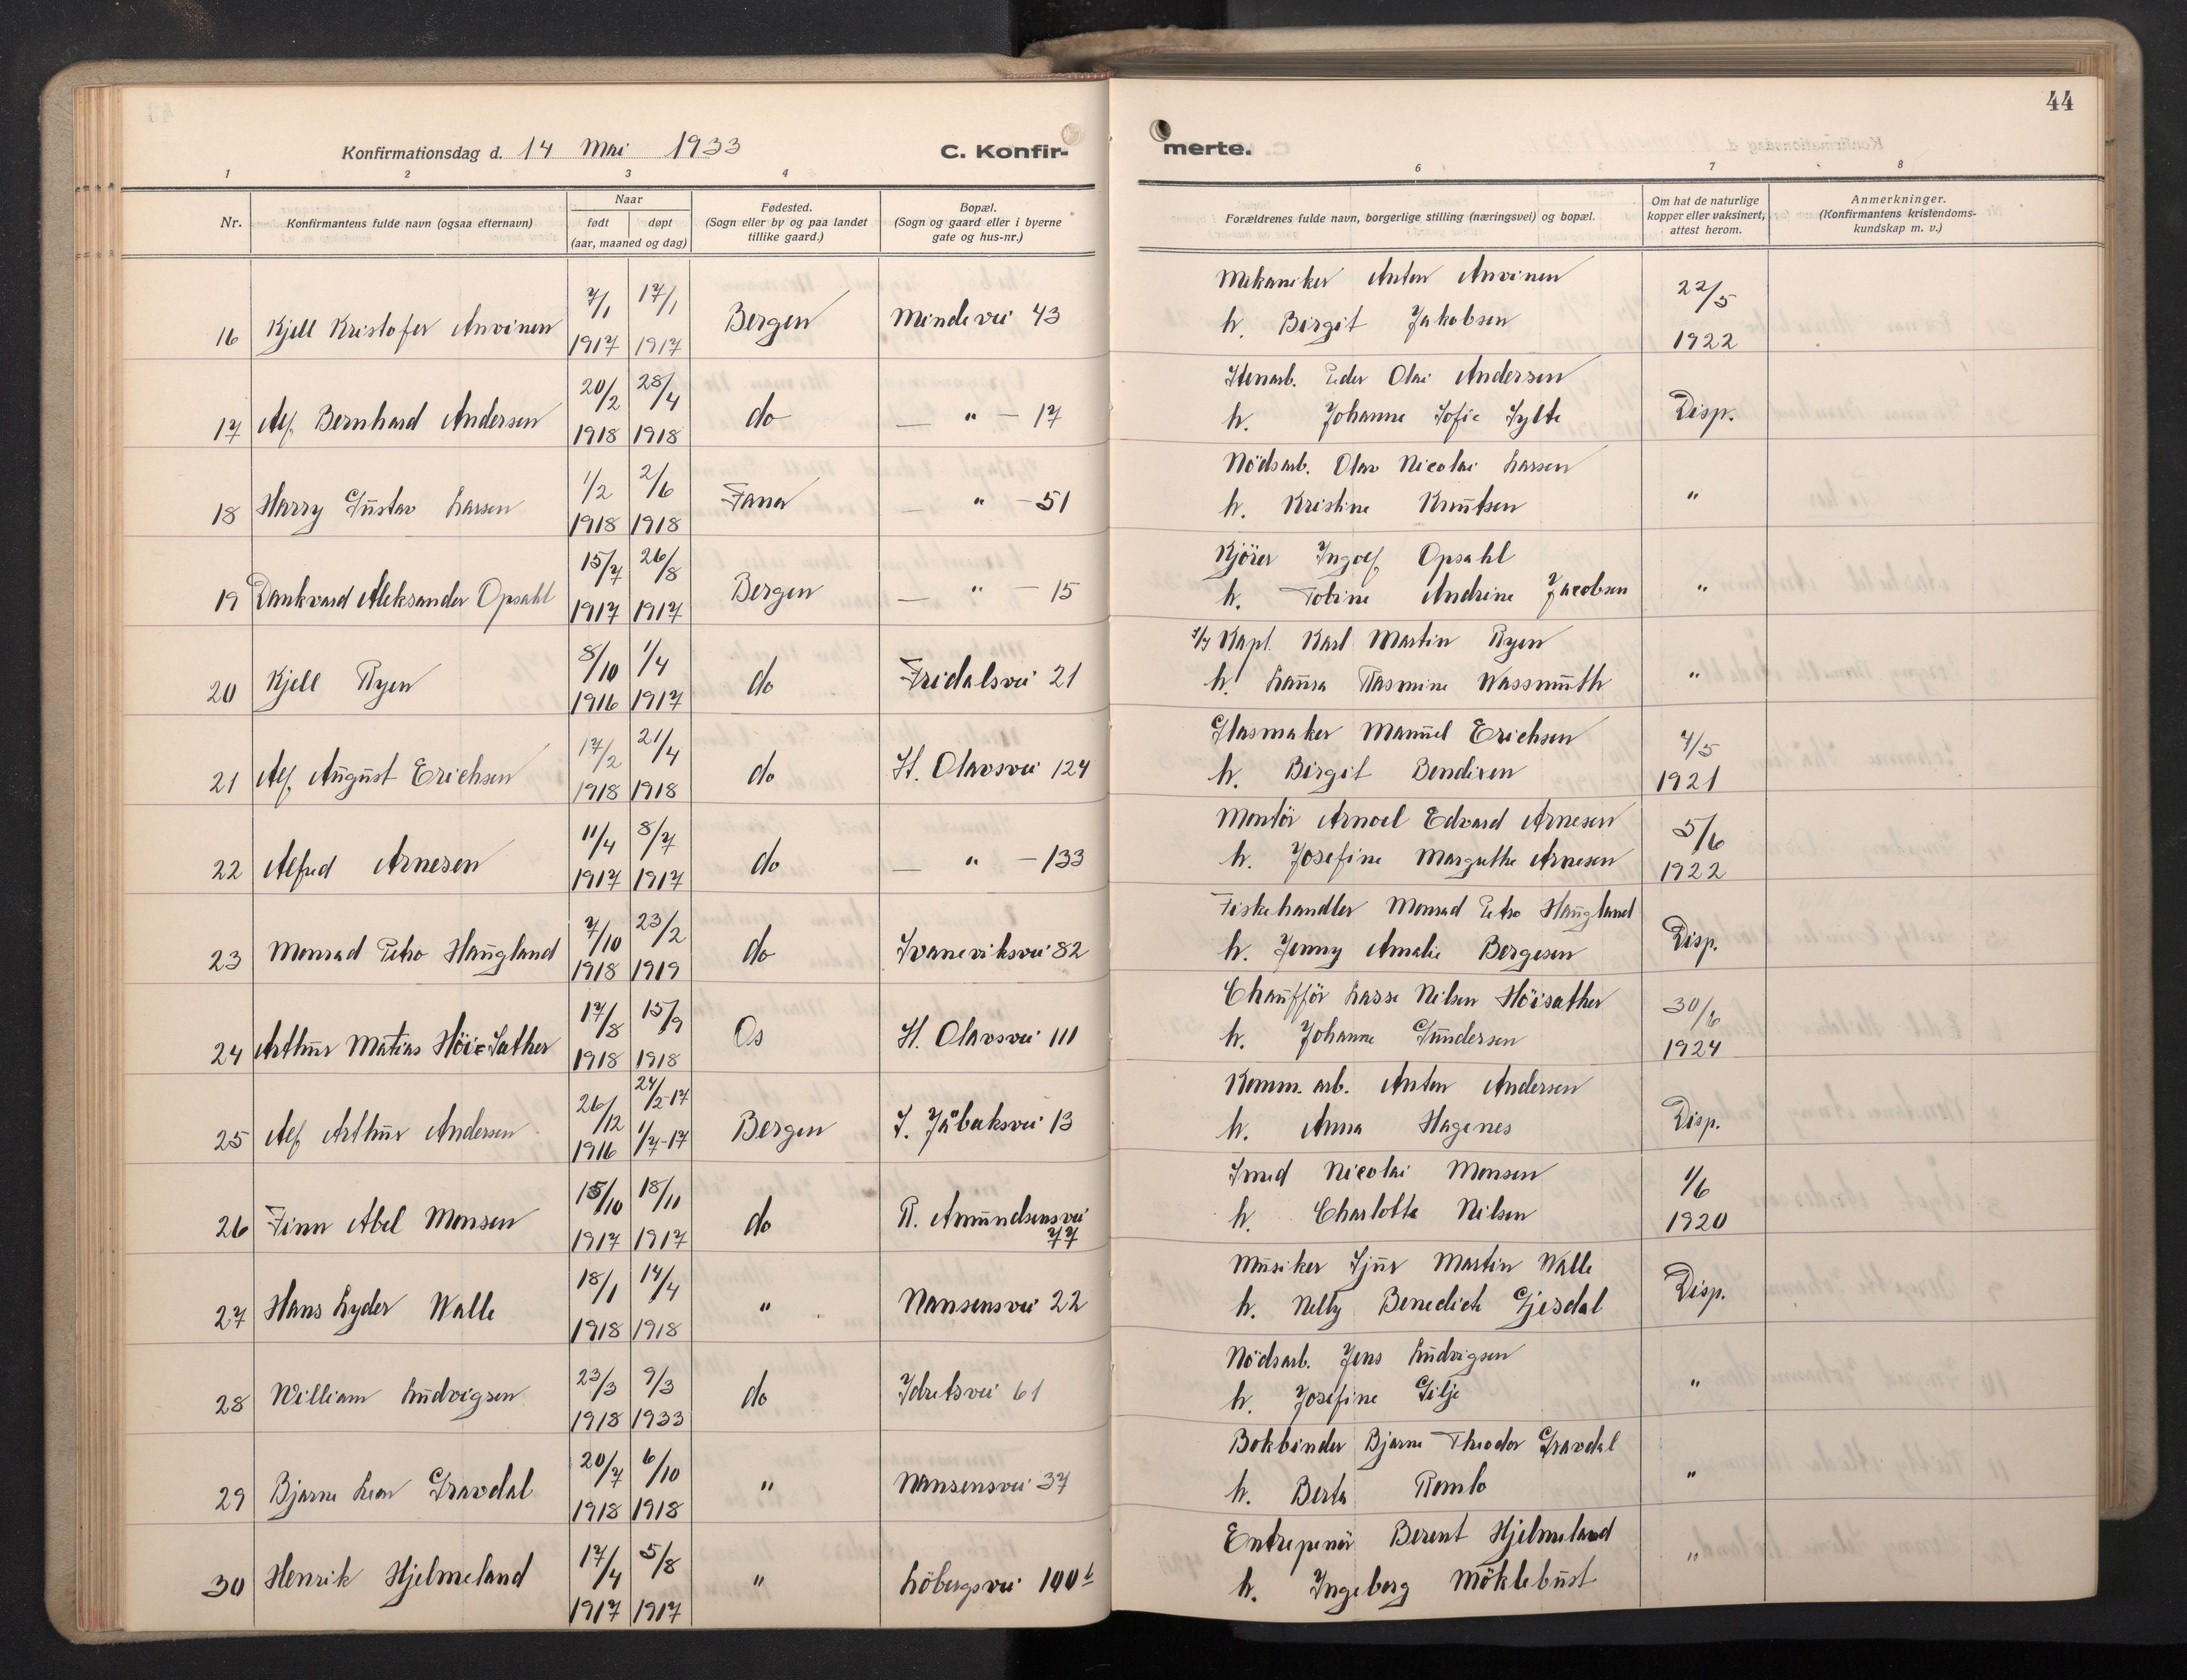 44
Konfirmationsdag d. 14 Mai 1933
C. Konfir-
merte.
1 2 3 4 6 7 8
Nr.
Konfirmantens fulde navn (ogsaa efternavn)
Naar
født døpt
(aar, maaned og dag)
Fødested.
(Sogn eller by og paa landet
tillike gaard.)
Bopæl.
(Sogn og gaard eller i byerne
gate og hus-nr.)
Forældrenes fulde navn, borgerlige stilling (næringsvei) og bopæl.
Om hat de naturlige
kopper eller vaksinert,
attest herom.
Anmerkninger.
(Konfirmantens kristendoms-
kundskap m. v.)
16 Kjell Kristofer Anvinen 7/1 1917 17/1 1917 Bergen Mindevei 43
Mekaniker Anton Anvinen
h. Birgit Jakobsen
22/5 1922
17 Alf Bernhard Andersen 20/2 1918 28/4 1918 do — " — 17
Stenarb. Peder Olai Andersen
h. Johanne Sofie Sylte
Disp.
18 Harry Gustav Larsen 1/2 1918 2/6 1918 Fana — " — 51
Nödsarb. Olav Nicolai Larsen
h. Kristine Knutsen
"
19 Dankvard Aleksander Opsahl 15/7 1917 26/8 1917 Bergen — " — 15
Kjörer Ingolf Opsahl
h. Tobine Andrine Jacobsen
"
20 Kjell Ryen 8/10 1916 1/4 1917 do Fridalsvei 21
Kapt. Karl Martin Ryen
h. Laura Rasmine Wassmuth
"
21 Alf August Erichsen 17/2 1918 21/4 1918 do St. Olavsvei 124
Glasmaker Manuel Erichsen
h. Birgit Bendixen
4/5 1921
22 Alfred Arnesen 11/4 1917 8/7 1917 do — " — 133
Montör Arnold Edvard Arnesen
h. Josefine Margrethe Arnesen
5/6 1922
23 Monrad Petro Haugland 7/10 1918 23/2 1919 do Svaneviksvei 82
Fiskehandler Monrad Petro Haugland
h. Jenny Amalie Bergesen
Disp.
24 Arthur Matias Höie Sather 17/8 1918 15/9 1918 Os St. Olavsvei 111
Chaufför Lasse Nilsen Höisather
h. Johanne Gundersen
30/6 1924
25 Alf Arthur Andersen 26/12 1916 24/2-17 1/7-17 Bergen S. Jåbaksvei 13
Komm. arb. Anton Andersen
h. Anna Hagenes
Disp.
26 Finn Abel Monsen 15/10 1917 18/11 1917 do R. Amundsensvei 77
Smed Nicolai Monsen
h. Charlotte Nilsen
1/6 1920
27 Hans Lyder Walle 18/1 1918 14/4 1918 " Nansensvei 22
Musiker Sjur Martin Walle
h. Nelly Benedicte Gjesdal
Disp.
28 William Ludvigsen 23/3 1918 9/3 1933 do Idretsvei 61
Nödsarb. Jens Ludvigsen
h. Josefine Gilje
"
29 Bjarne Leon Gravdal 20/7 1918 6/10 1918 " Nansensvei 37
Bokbinder Bjarne Theodor Gravdal
h. Berta Romlo
"
30 Henrik Hjelmeland 17/4 1917 5/8 1917 " Löbergsvei 100 b
Entrepenör Berent Hjelmeland
h. Ingeborg Möklebust
"